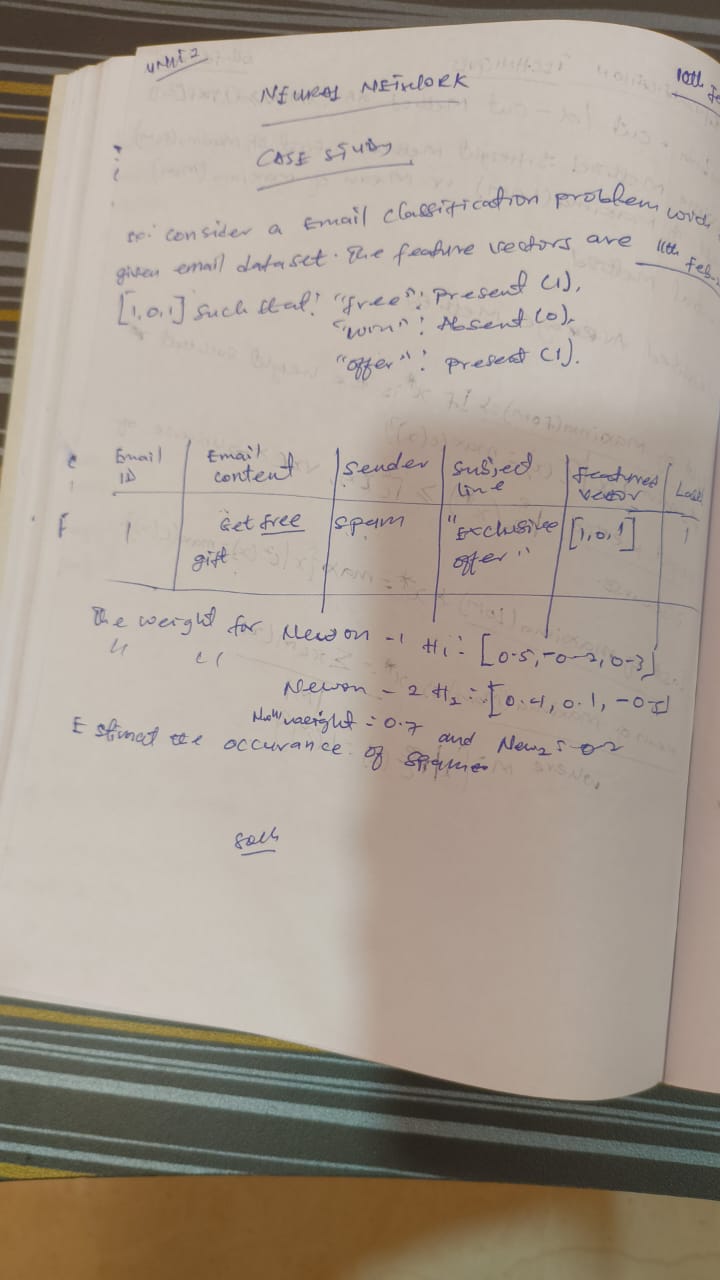 UNIT 2
10th Fe
NEURAL NETWORK
CASE STUDY
consider a Email classification problem with
given email dataset. The feature vectors are 11th Feb
[1,0,1] such that: "free": Present (1),
"won": Absent (0),
"offer": present (1).
Email ID | Email content | Sender | Subject line | Featured vector | Label
1 | Get free gift | spam | "Exclusive offer" | [1,0,1] | 1
The weight for Neuron -1 H1: [0.5, -0.2, 0.3]
" " Neuron - 2 H2: [0.4, 0.1, -0.5]
weight = 0.7 and Neu2 = 0.2
Estimat the occurance of
Soln